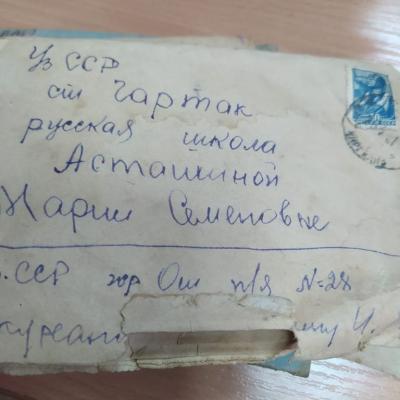 Уз ССР
ст Чартак
русская школа
Асташиной
Марии Семеновне
ССР гор Ош п/я N=28